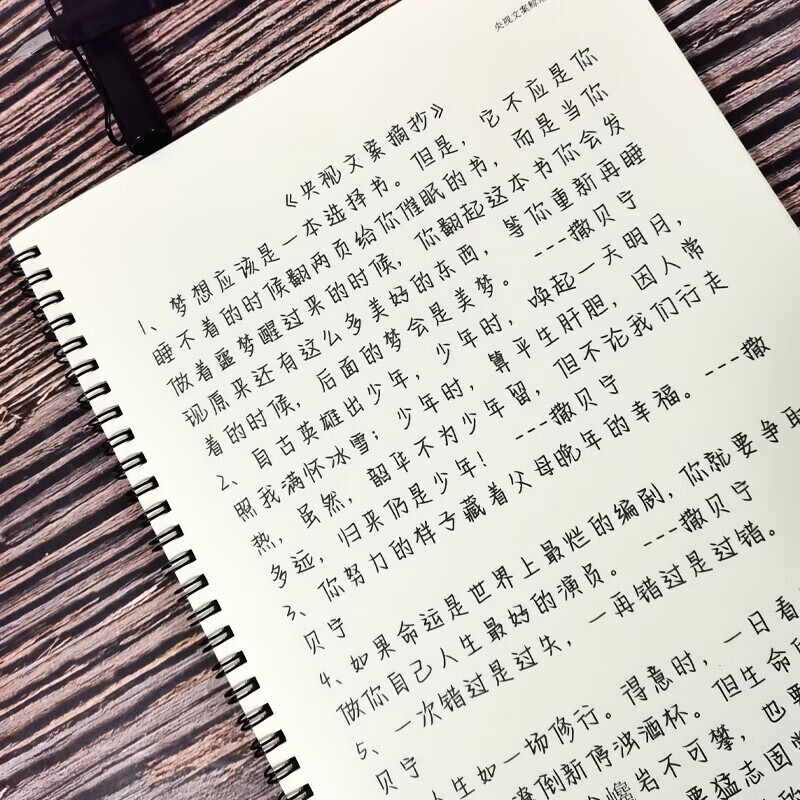 央视文案
《央视文案摘抄》
1、梦想应该是一本选择书。但是，它不应是你
睡不着的时候翻两页给你催眠的书，而是当你
做着噩梦醒过来的时候，你翻起这本书你会发
现原来还有这么多美好的东西，等你重新再睡
着的时候，后面的梦会是美梦。 ---撒贝宁
2、自古英雄出少年，少年时，唤起一天明月，
照我满怀冰雪；少年时，算平生肝胆，因人常
热，虽然，韶华不为少年留，但不论我们行走
多远，归来仍是少年！ ---撒贝宁
3、你努力的样子藏着父母晚年的幸福。---撒
贝宁
4、如果命运是世界上最烂的编剧，你就要争取
做你自己人生最好的演员。 ---撒贝宁
5、一次错过是过失，一再错过是过错。
贝宁
人生如一场修行。得意时，一日看
潦倒新停浊酒杯。但生命
巉岩不可攀，也要
要猛志固常